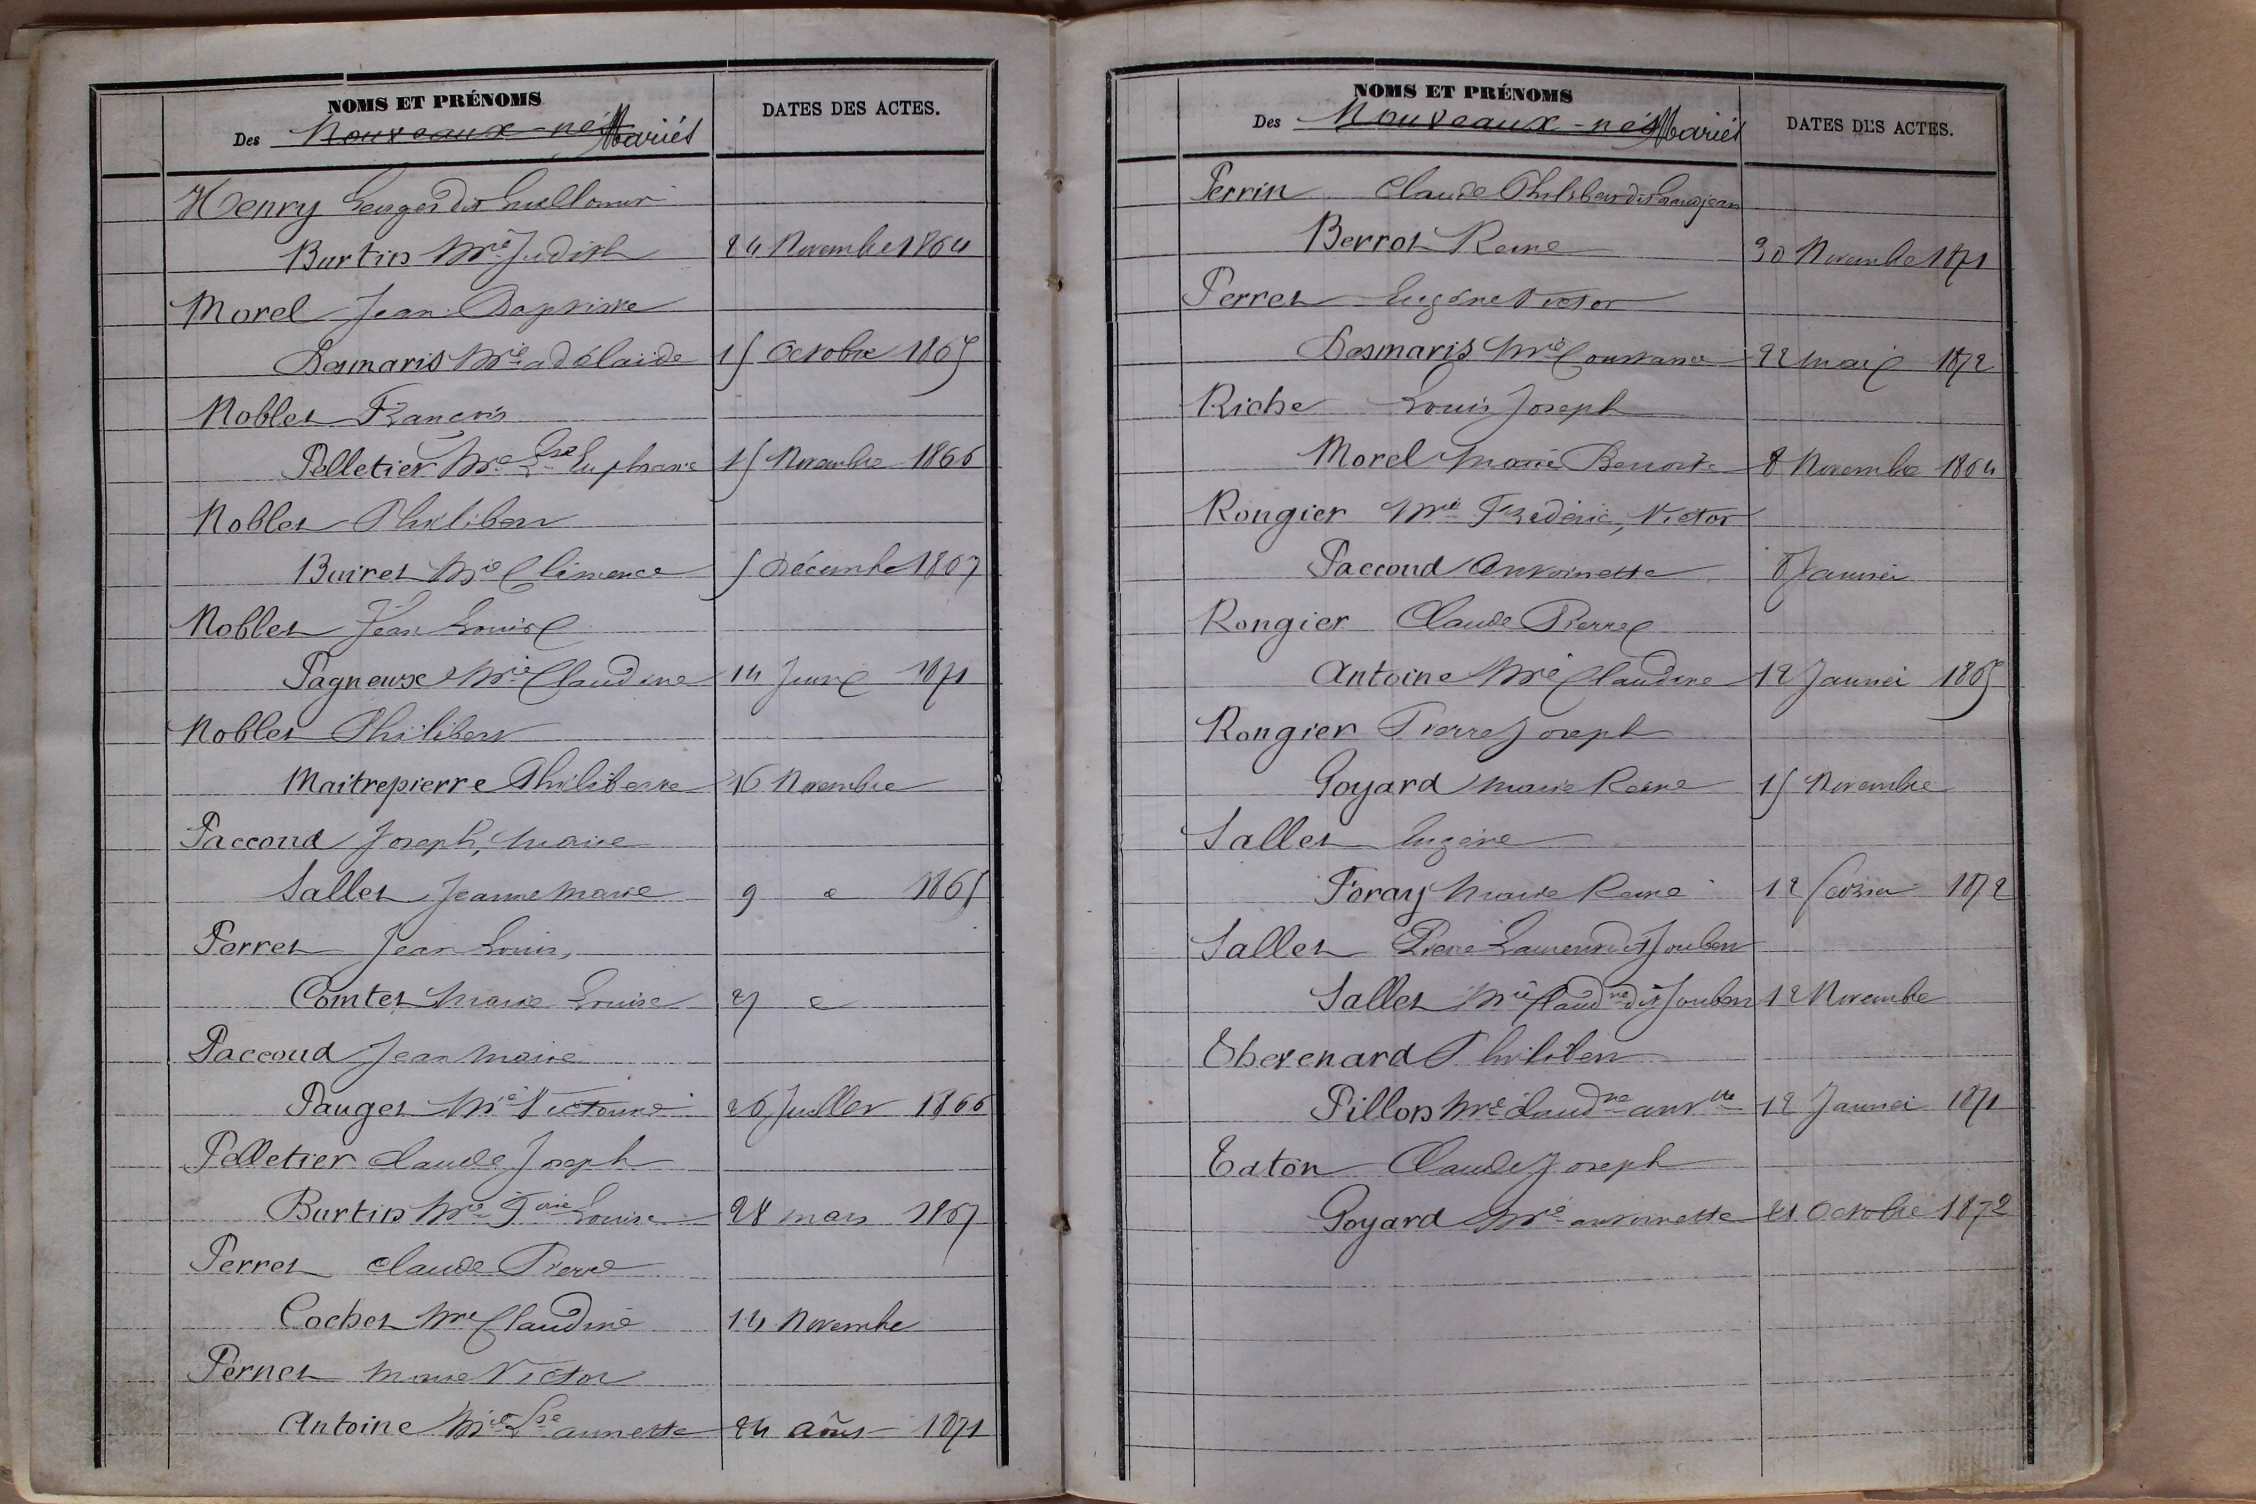 NOMS ET PRÉNOMS
Des Nouveaux-nés Mariés
DATES DES ACTES.
Henry Georges dit
Burtin Mie Judith 24 Novembre 1864
Morel Jean-Baptiste
Desmaris Mie adélaide 15 Octobre 1865
Noblet François
Pelletier Mie Lse Euphrasie 15 Novembre 1866
Noblet Philibert
Buiret Mie Clémence 5 Décembre 1867
Noblet Jean Louis
Pagneux Mie Claudine 14 Juin 1871
Noblet Philibert
Maitrepierre Philiberte 16 Novembre
Paccoud Joseph, Marie
Sallet Jeanne Marie 9 1865
Perret Jean Louis,
Comtet Marie Louise
Paccoud Jean Marie
Pauget Mie Victorine 26 Juillet 1866
Pelletier Claude Joseph
Burtin Mie Louise 28 mars 1867
Perret Claude Pierre
Cochet Mie Claudine 14 Novembre
Pernet Marie Victor
Antoine Mie Lse annette 24 Août 1871
NOMS ET PRÉNOMS
Des Nouveaux-nés Mariés
DATES DES ACTES.
Perrin Claude Philibert dit Grandjean
Berrot Reine 30 Novembre 1871
Perret Eugène Victor
Desmaris Mie Constance 22 mai 1872
Riche Louis Joseph
Morel Marie Benoite 8 Novembre 1864
Rongier Mie Frédéric, Victor
Paccoud Antoinette 8 Janvier
Rongier Claude Pierre
Antoine Mie Claudine 12 Janvier 1865
Rongier Pierre Joseph
Goyard Marie Reine 15 Novembre
Sallet Eugène
Foray Marie Reine 12 février 1872
Sallet Pierre Laurent dit Joubert
Sallet Mie Claudne dit Joubert 12 Novembre
Thevenard Philibert
Pillon Mie Claudne antte 12 Janvier 1871
Taton Claude Joseph
Goyard Mie antoinette 21 Octobre 1872